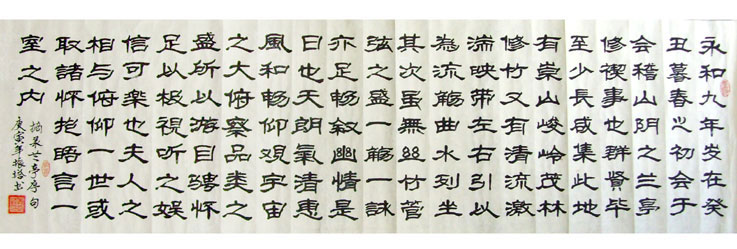 永和九年岁在癸
丑暮春之初会于
会稽山阴之兰亭
修禊事也群賢毕
至少長咸集此地
有崇山峻岭茂林
修竹又有清流激
湍映带左右引以
為流觞曲水列坐
其次虽無丝竹管
弦之盛一觞一詠
亦足畅叙幽情是
日也天朗氣清惠
風和畅仰观宇宙
之大俯察品类之
盛所以游目骋怀
足以极视听之娱
信可楽也夫人之
相与俯仰一世或
取諸怀抱晤言一
室之内
摘录兰亭序句
庚寅年振塔书